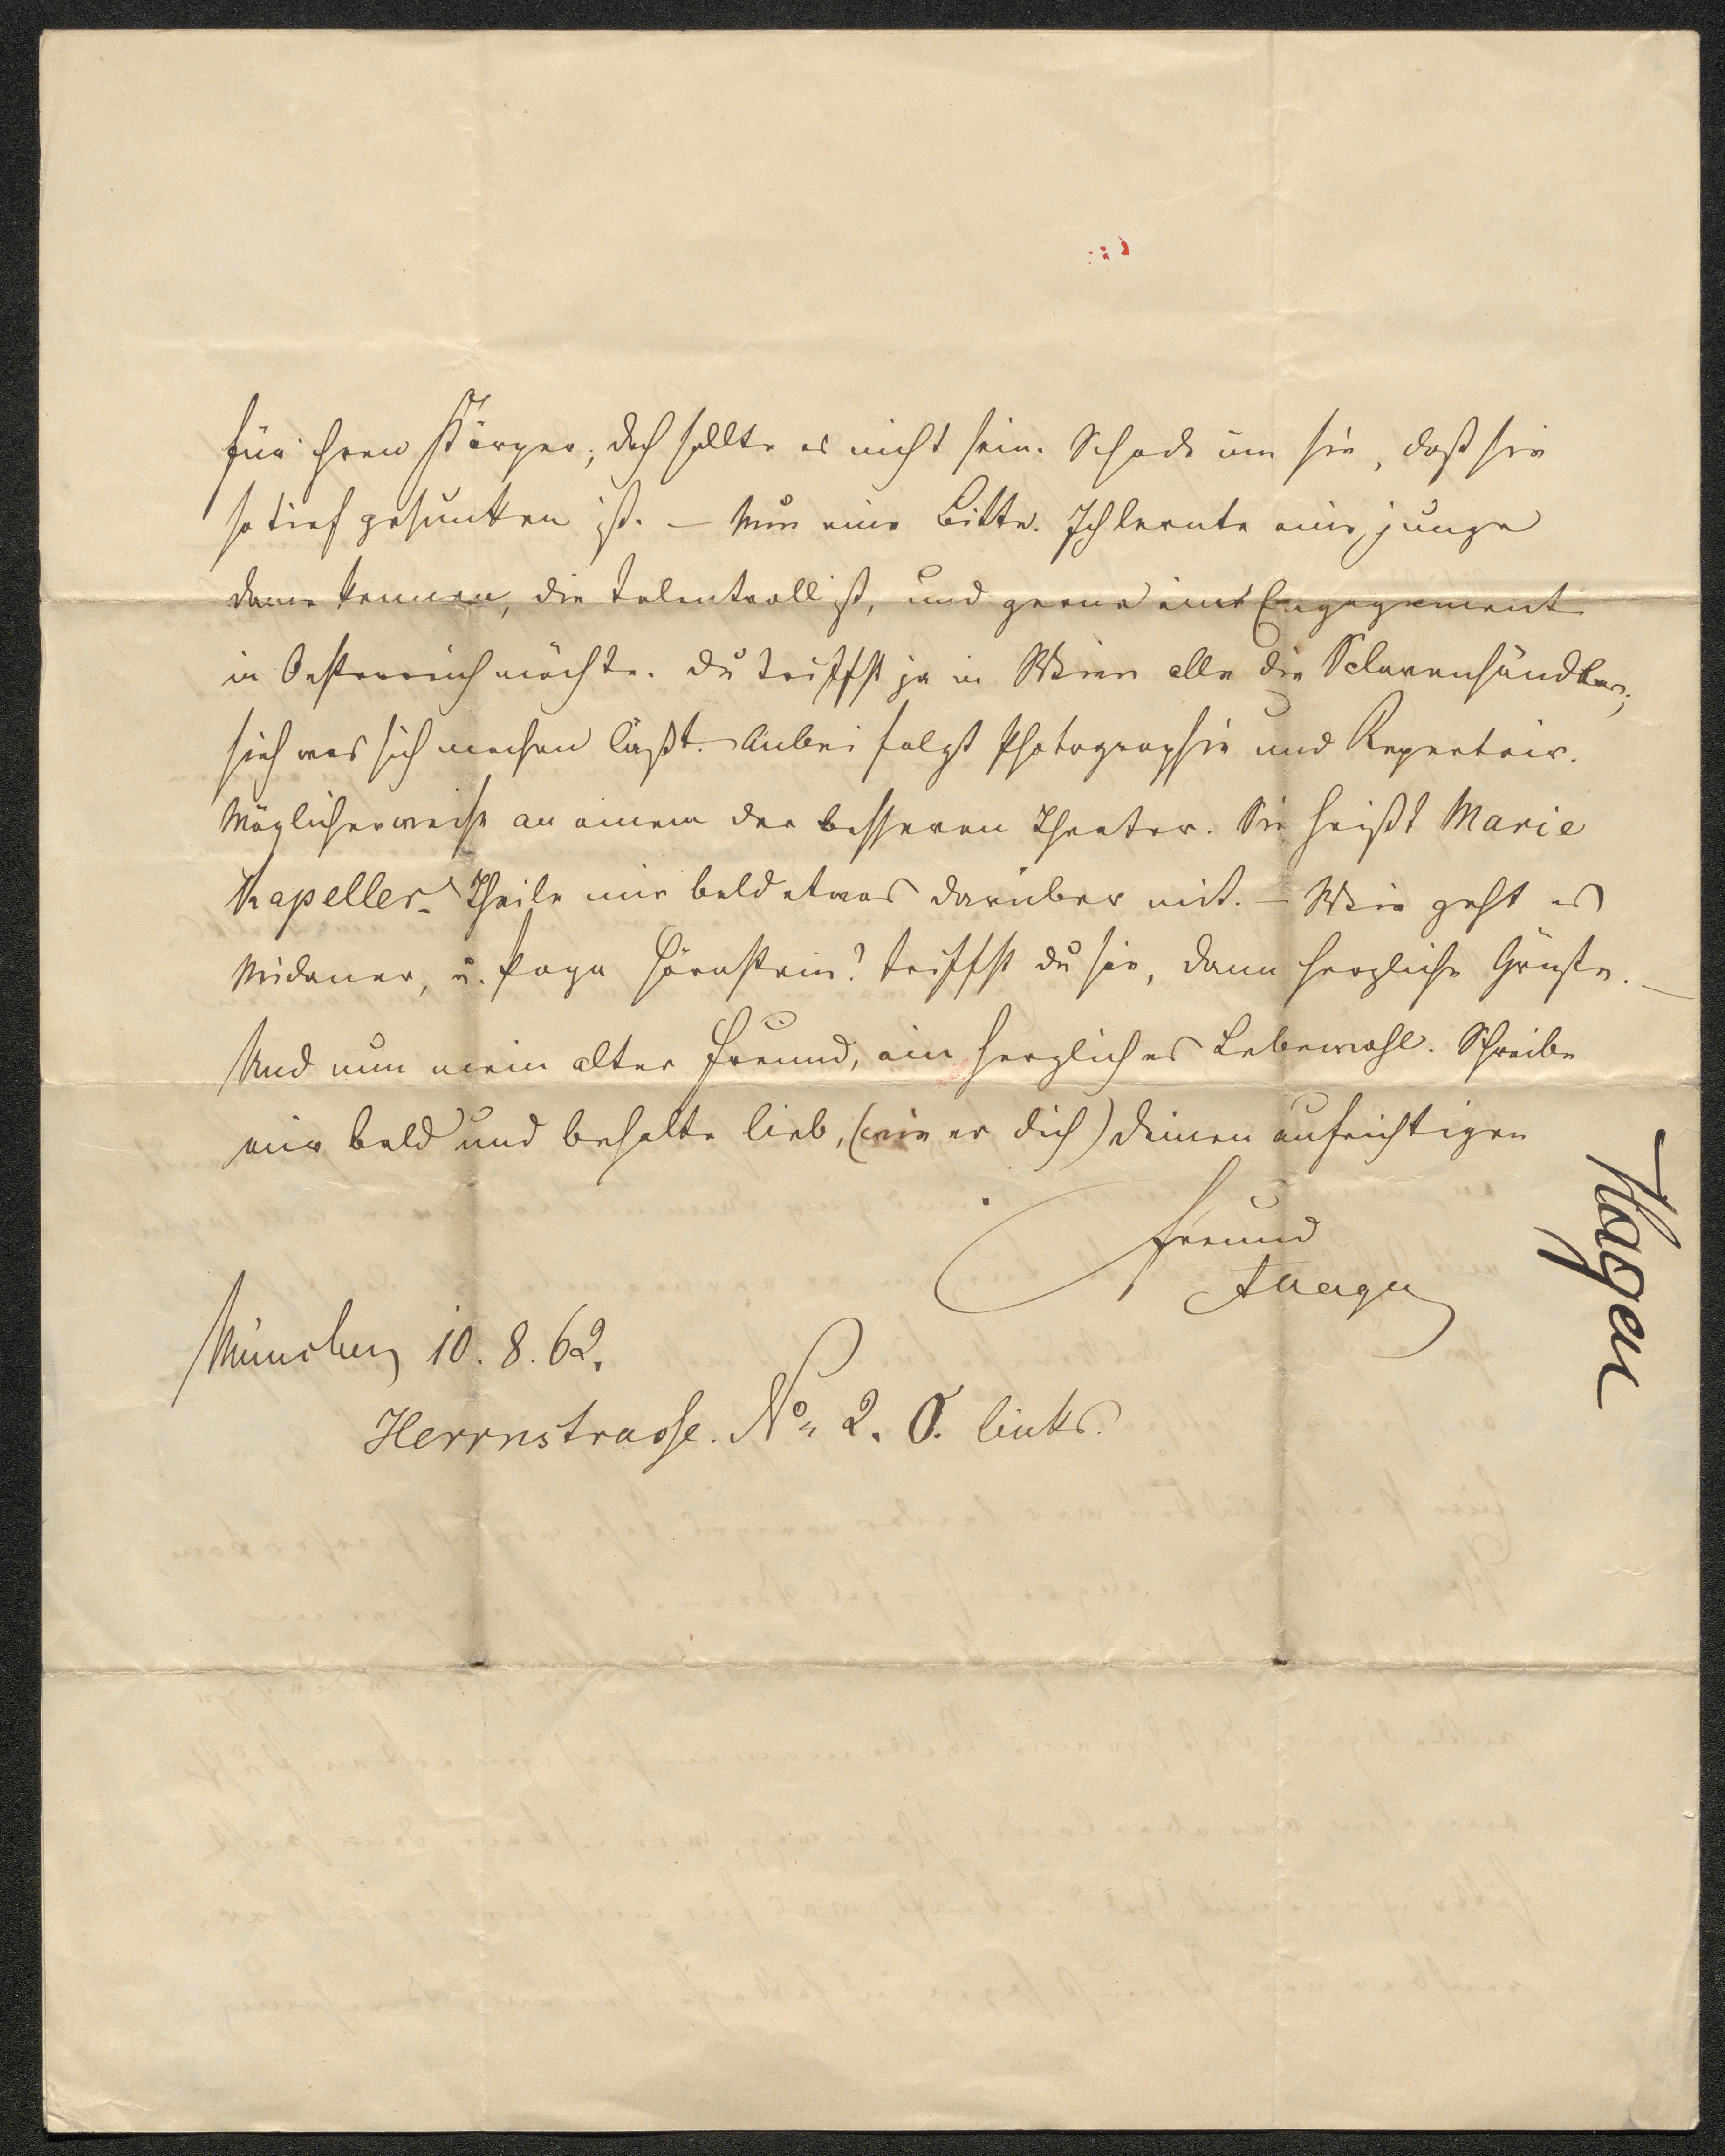 für ihren Körper; doch sollte es nicht sein. Schade um sie, daß sie
so tief gesunken ist. — Nun eine Bitte. Ich lernte eine junge
Dame kennen, die talentvoll ist, und gerne ein Engagement
in Oesterreich möchte. Du triffst ja in Wien alle die Sclavenhändler;
sieh was sich machen läßt. Anbei folgt Photographie und Repertoir.
Möglicherweise an einem der besseren Theater. Sie heißt Marie
Kapeller. Theile mir bald etwas darüber mit. — Wie geht es
u. Papa Hörnstein? Triffst du sie, dann herzliche Grüße. —
Und nun mein alter Freund, ein herzliches Lebewohl. Schreibe
mir bald und behalte lieb, (wie er dich) deinen aufrichtigen
Freund
Hagen
München 10. 8. 62.
Herrnstrasse. No 2. 0. links.
Hagen